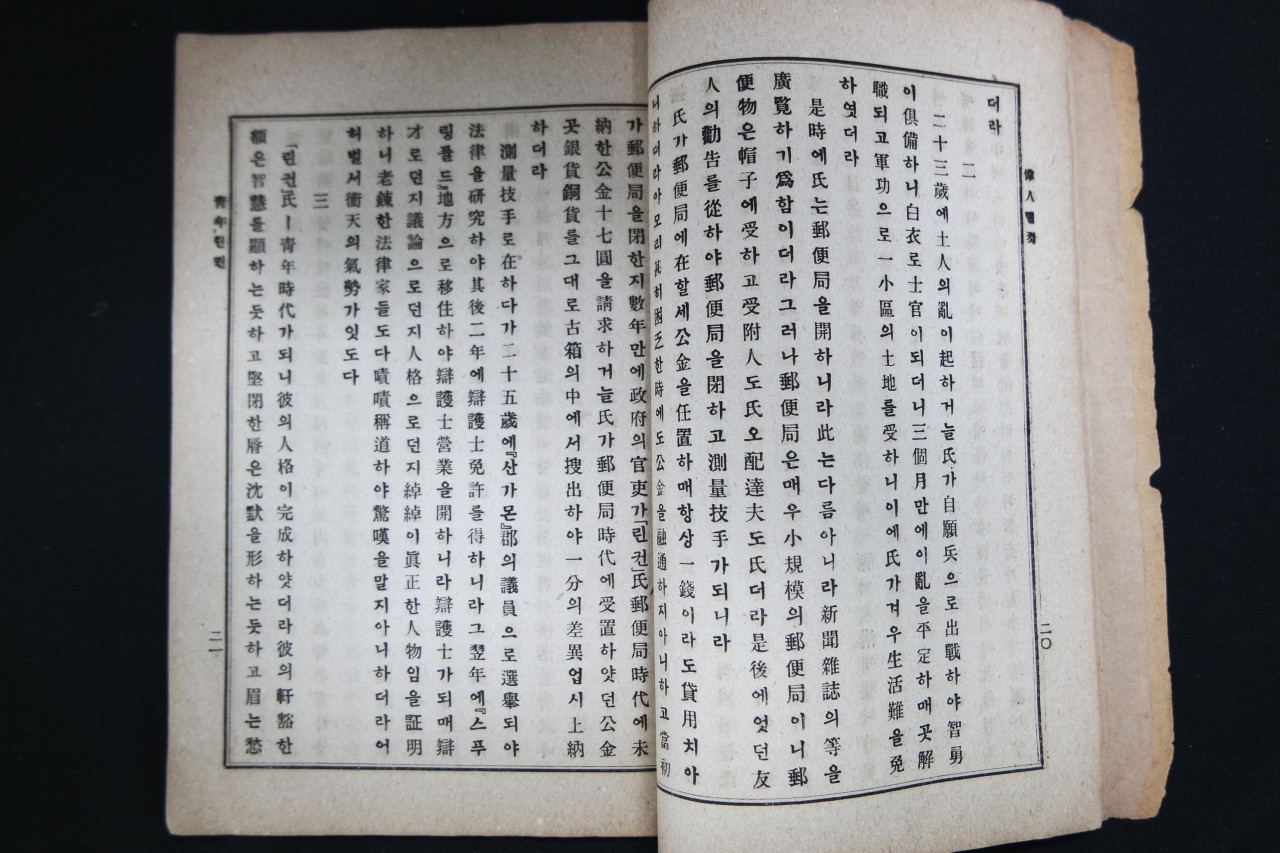 偉人린컨
二〇
더라
二
二十三歲에土人의亂이起하거늘氏가自願兵으로出戰하야智勇
이俱備하니白衣로士官이되더니三個月만에이亂을平定하매곳解
職되고軍功으로一小區의土地를受하니이에氏가겨우生活難을免
하엿더라
是時에氏는郵便局을開하니라此는다름아니라新聞雜誌의等을
廣覽하기爲함이더라그러나郵便局은매우小規模의郵便局이니郵
便物은帽子에受하고受附人도氏오配達夫도氏더라是後에엇던友
人의勸告를從하야郵便局을閉하고測量技手가되니라
氏가郵便局에在할세公金을任置하매항상一錢이라도貸用치아
니하더라아모리甚히困乏한時에도公金을融通하지아니하고當初
가郵便局을閉한지數年만에政府의官吏가「린컨」氏郵便局時代에未
納한公金十七圓을請求하거늘氏가郵便局時代에受置하얏던公金
곳銀貨銅貨를그대로古箱의中에서搜出하야一分의差異업시上納
하더라
測量技手로在하다가二十五歲에『산가몬』郡의議員으로選擧되야
法律을硏究하야其後二年에辯護士免許를得하니라그翌年에『스푸
링풀드』地方으로移住하야辯護士營業을開하니라辯護士가되매辯
才로던지議論으로던지人格으로던지綽綽이眞正한人物임을証明
하니老鍊한法律家들도다嘖嘖稱道하야驚嘆을말지아니하더라어
허벌서衝天의氣勢가잇도다
三
「린컨」氏ㅣ靑年時代가되니彼의人格이完成하얏더라彼의軒豁한
額은智慧를顯하는듯하고堅閉한唇은沈默을形하는듯하고眉는愁
靑年린컨
二一